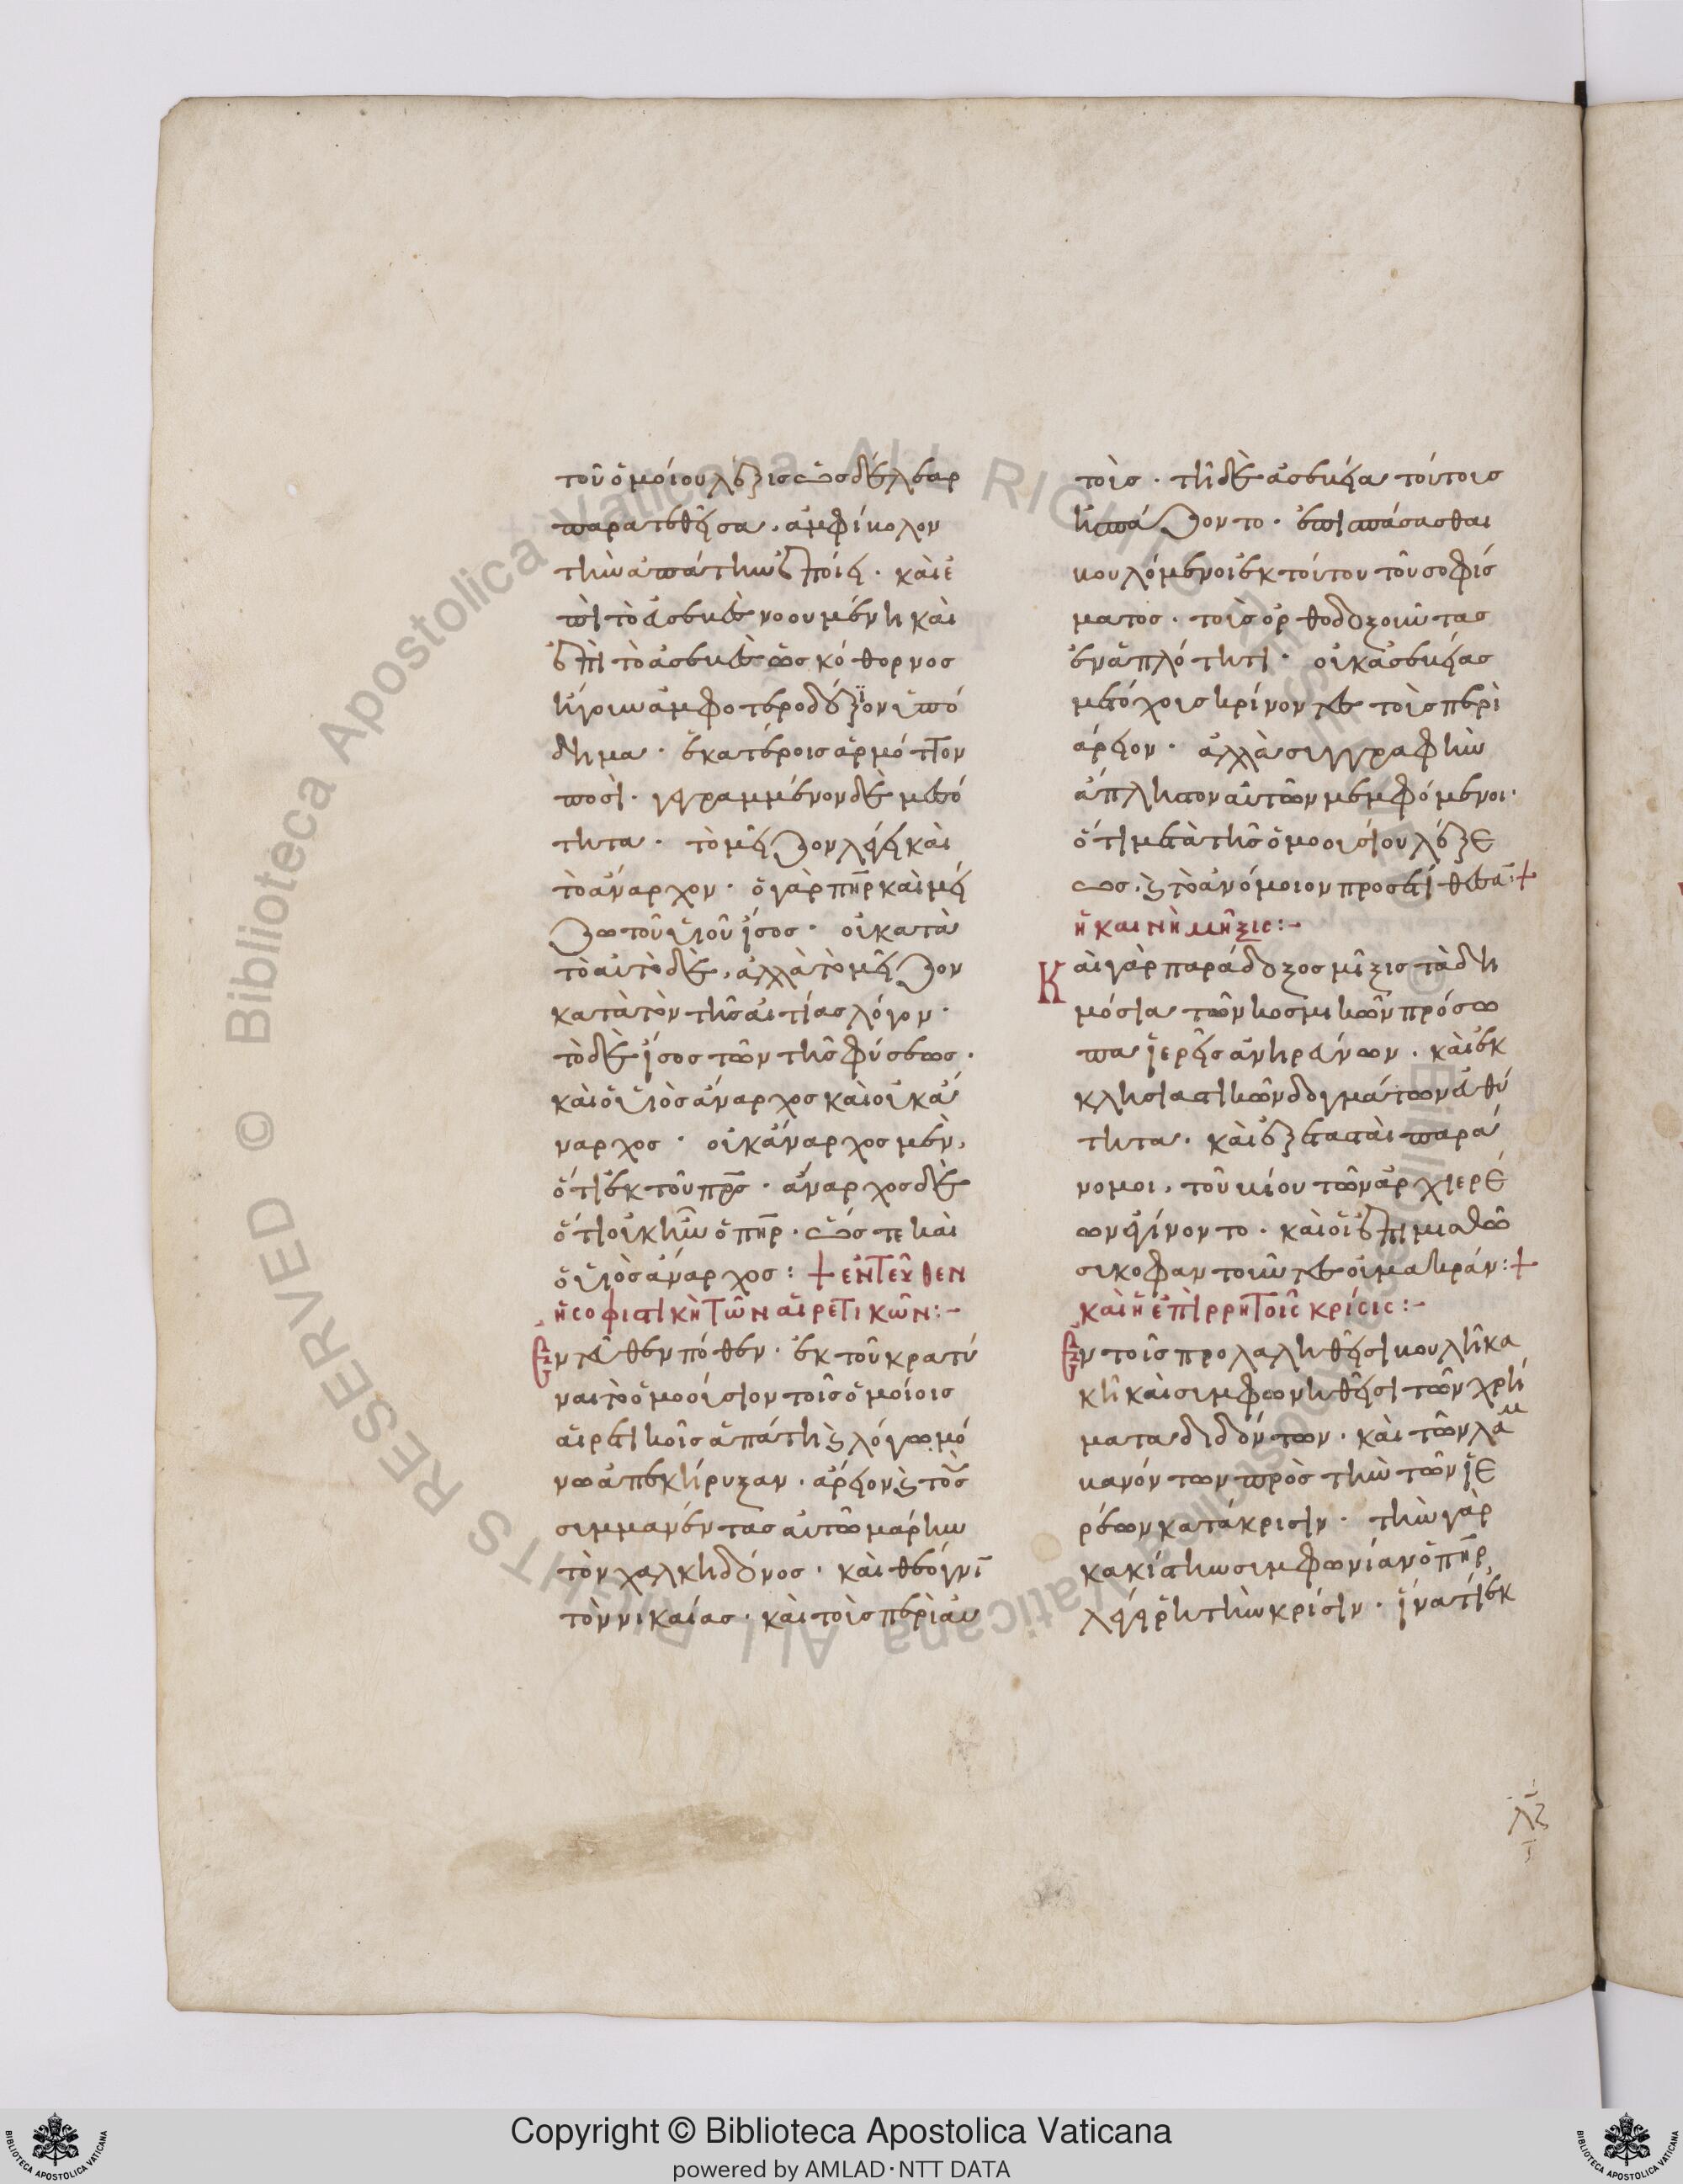 τοῦ ὁμοίου λέξις ὡς δέλεαρ
παρατεθεῖσα, ἀμφίβολον
τὴν ἀπάτην ἐποίει· καὶ ἐ
πὶ τὸ εὐσεβὲς νοουμένη καὶ
ἐπὶ τὸ ἀσεβὲς ὡς κόθορνος
ἤγουν ἀμφοτεροδέξιον ὑπό
δημα· ἑκατέροις ἁρμόττον
ποσί· γεγραμμένον δὲ
τητα· τὸ μεῖζον λέγει καὶ
τὸ ἄναρχον· ὁ γὰρ πηρ καὶ μεί
ζω τοῦ υἱοῦ ἴσος· οὐ κατὰ
τὸ αὐτὸ δὲ, ἀλλὰ τὸ μεῖζον
κατὰ τὸν τῆς αἰτίας λόγον·
τὸ δὲ ἴσος τῶν τῆς φύσεως·
καὶ ὁ υἱὸς ἄναρχος καὶ οὐκ ἄ
ναρχος· οὐκ ἄναρχος μὲν,
ὅτι ἐκ τοῦ πρς· ἄναρχος δὲ
ὅτι οὐκ ἦν ὁ πηρ· ὥστε καὶ
ὁ υἱὸς ἄναρχος: + ἐντεῦθεν
ἡ σοφιστικὴ τῶν αἱρετικῶν:-
Ἐντεῦθέν ποθεν· ἐκ τοῦ κρατύ
ναι τὸ ὁμοούσιον τοῖς ὁμοίοις
αἱρετικοῖς ἀπάτης λόγω μό
νω ἀπεκήρυξαν· ἄρειον καὶ τοὺς
συμμανέντας αὐτῶ μάριν
τὸν χαλκηδόνος· καὶ θεόγνι
τὸν νικαίας· καὶ τοῖς περὶ αὐ
τοῖς· τῆ δὲ ἀσεβεία τούτοις
ἠσπάζοντο· ἐπισπάσασθαι
βουλόμενοι ἐκ τούτου τοῦ σοφίσ
ματος· τοὺς ὀρθοδοξοῦντας
ἐν ἁπλότητι· οὐκ ἀσεβείας
μετόχοις κρίνοντες τοῖς περὶ
ἄρειον· ἀλλὰ συγγραφὴν
ἄπληστον αὐτῶν μεμφόμενοι·
ὅτι μετὰ τῆς ὁμοουσίου λέξε
ως, καὶ τὸ ἀνόμοιον προστίθεται:+
ἡ καινὴ μῆξις:-
Καὶ γὰρ παράδοξος μῖξις τὰ δη
μόσια τῶν κοσμικῶν πρόσω
πα ἱερεῖς ἀνηρεύνων· καὶ ἐκ
κλησιαστικῶν δογμάτων εὐθύ
τητα· καὶ ἐξεταστὰι παρά
νομοι, τοῦ βίου τῶν ἀρχιερέ
ων ἐγίνοντο· καὶ οἱ ἐπὶ μιαδῶ
συκοφαντοῦντες οὐ μακράν:+
καὶ ἡ ἐπὶ ῥητοῖς κρίσις:-
Ἐν τοῖς προλαληθεῖσι βουλῆ κα
κῆ καὶ συμφωνηθεῖσι τῶν χρή
ματα διδόντων· καὶ τῶν λαμ
βανόντων πρὸς τὴν τῶν ἱε
ρέων κατάκρισιν· τὴν γὰρ
κακίστην συμφωνίαν ὁ πηρ,
λέγει ῥητὴν κρίσιν· ἵνα τί ἐκ
λζ